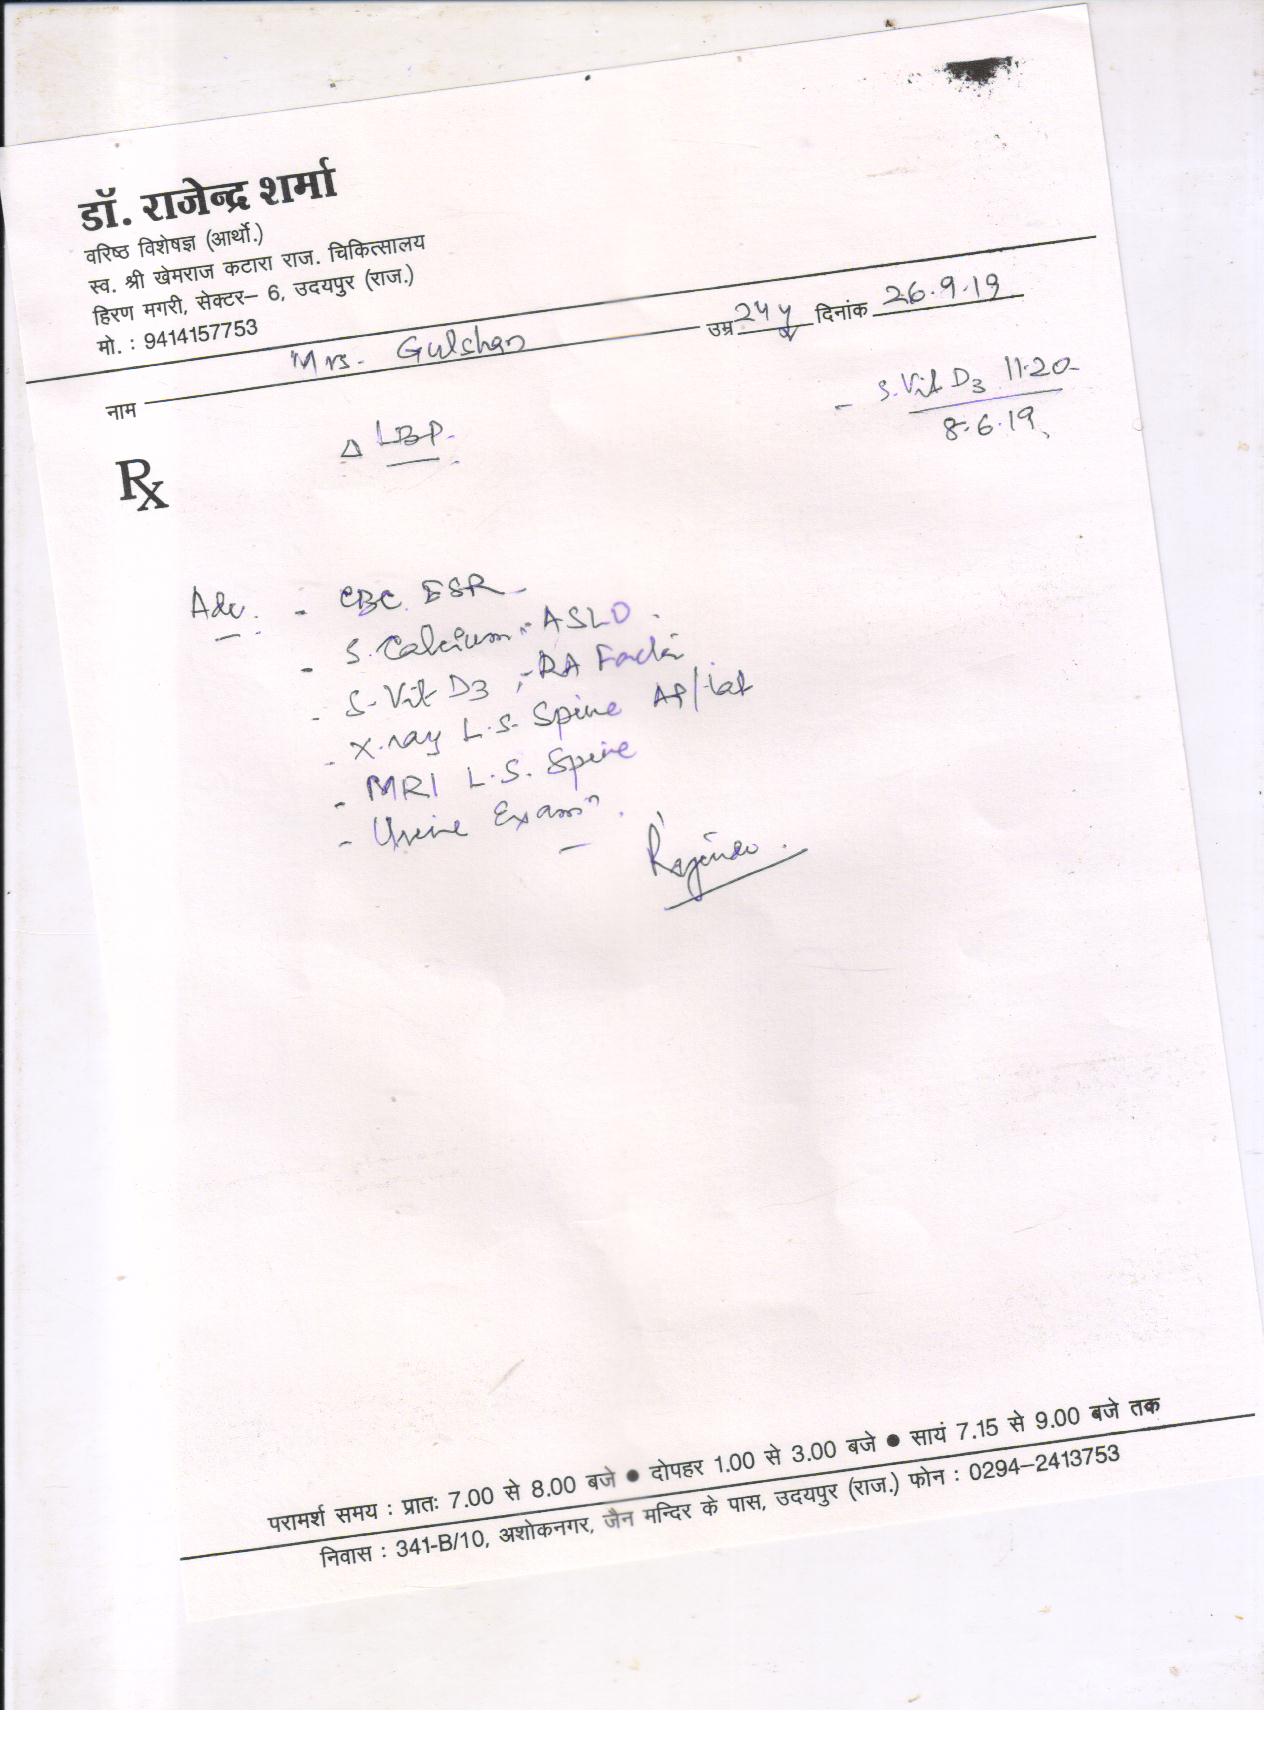 डॉ. राजेन्द्र शर्मा
वरिष्ठ विशेषज्ञ (आर्थो.)
स्व. श्री खेमराज कटारा राज. चिकित्सालय
हिरण मगरी, सेक्टर– 6, उदयपुर (राज.)
मो. : 9414157753
नाम Mrs. Gulshan उम्र 24 y दिनांक 26.9.19
- S. Vit D3 11.20
8.6.19
Δ LBP.
Rx
Adv. - CBC. ESR
- S. Calcium - ASLO.
- S. Vit D3, - RA Factor
- X.ray L.S. Spine AP/lat
- MRI L.S. Spine
- Urine Examn.
परामर्श समय : प्रातः 7.00 से 8.00 बजे ● दोपहर 1.00 से 3.00 बजे ● सायं 7.15 से 9.00 बजे तक
निवास : 341-B/10, अशोकनगर, जैन मन्दिर के पास, उदयपुर (राज.) फोन : 0294–2413753